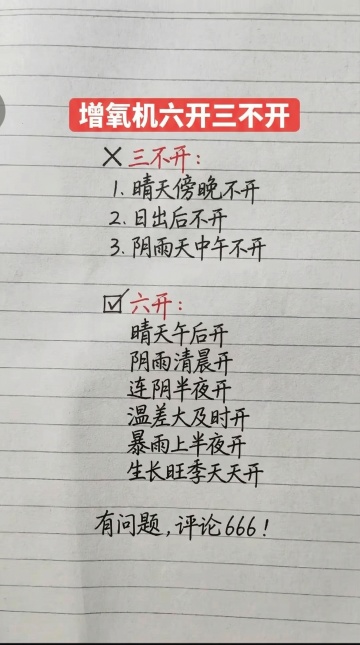 增氧机六开三不开
× 三不开：
1. 晴天傍晚不开
2. 日出后不开
3. 阴雨天中午不开
☑ 六开：
晴天午后开
阴雨清晨开
连阴半夜开
温差大及时开
暴雨上半夜开
生长旺季天天开
有问题，评论666！